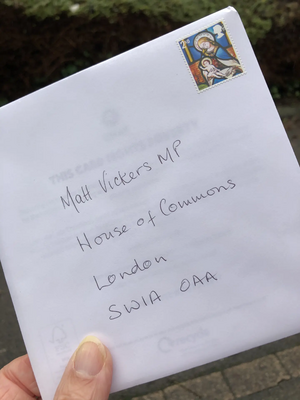 Matt Vickers MP
House of Commons
London
SW1A 0AA